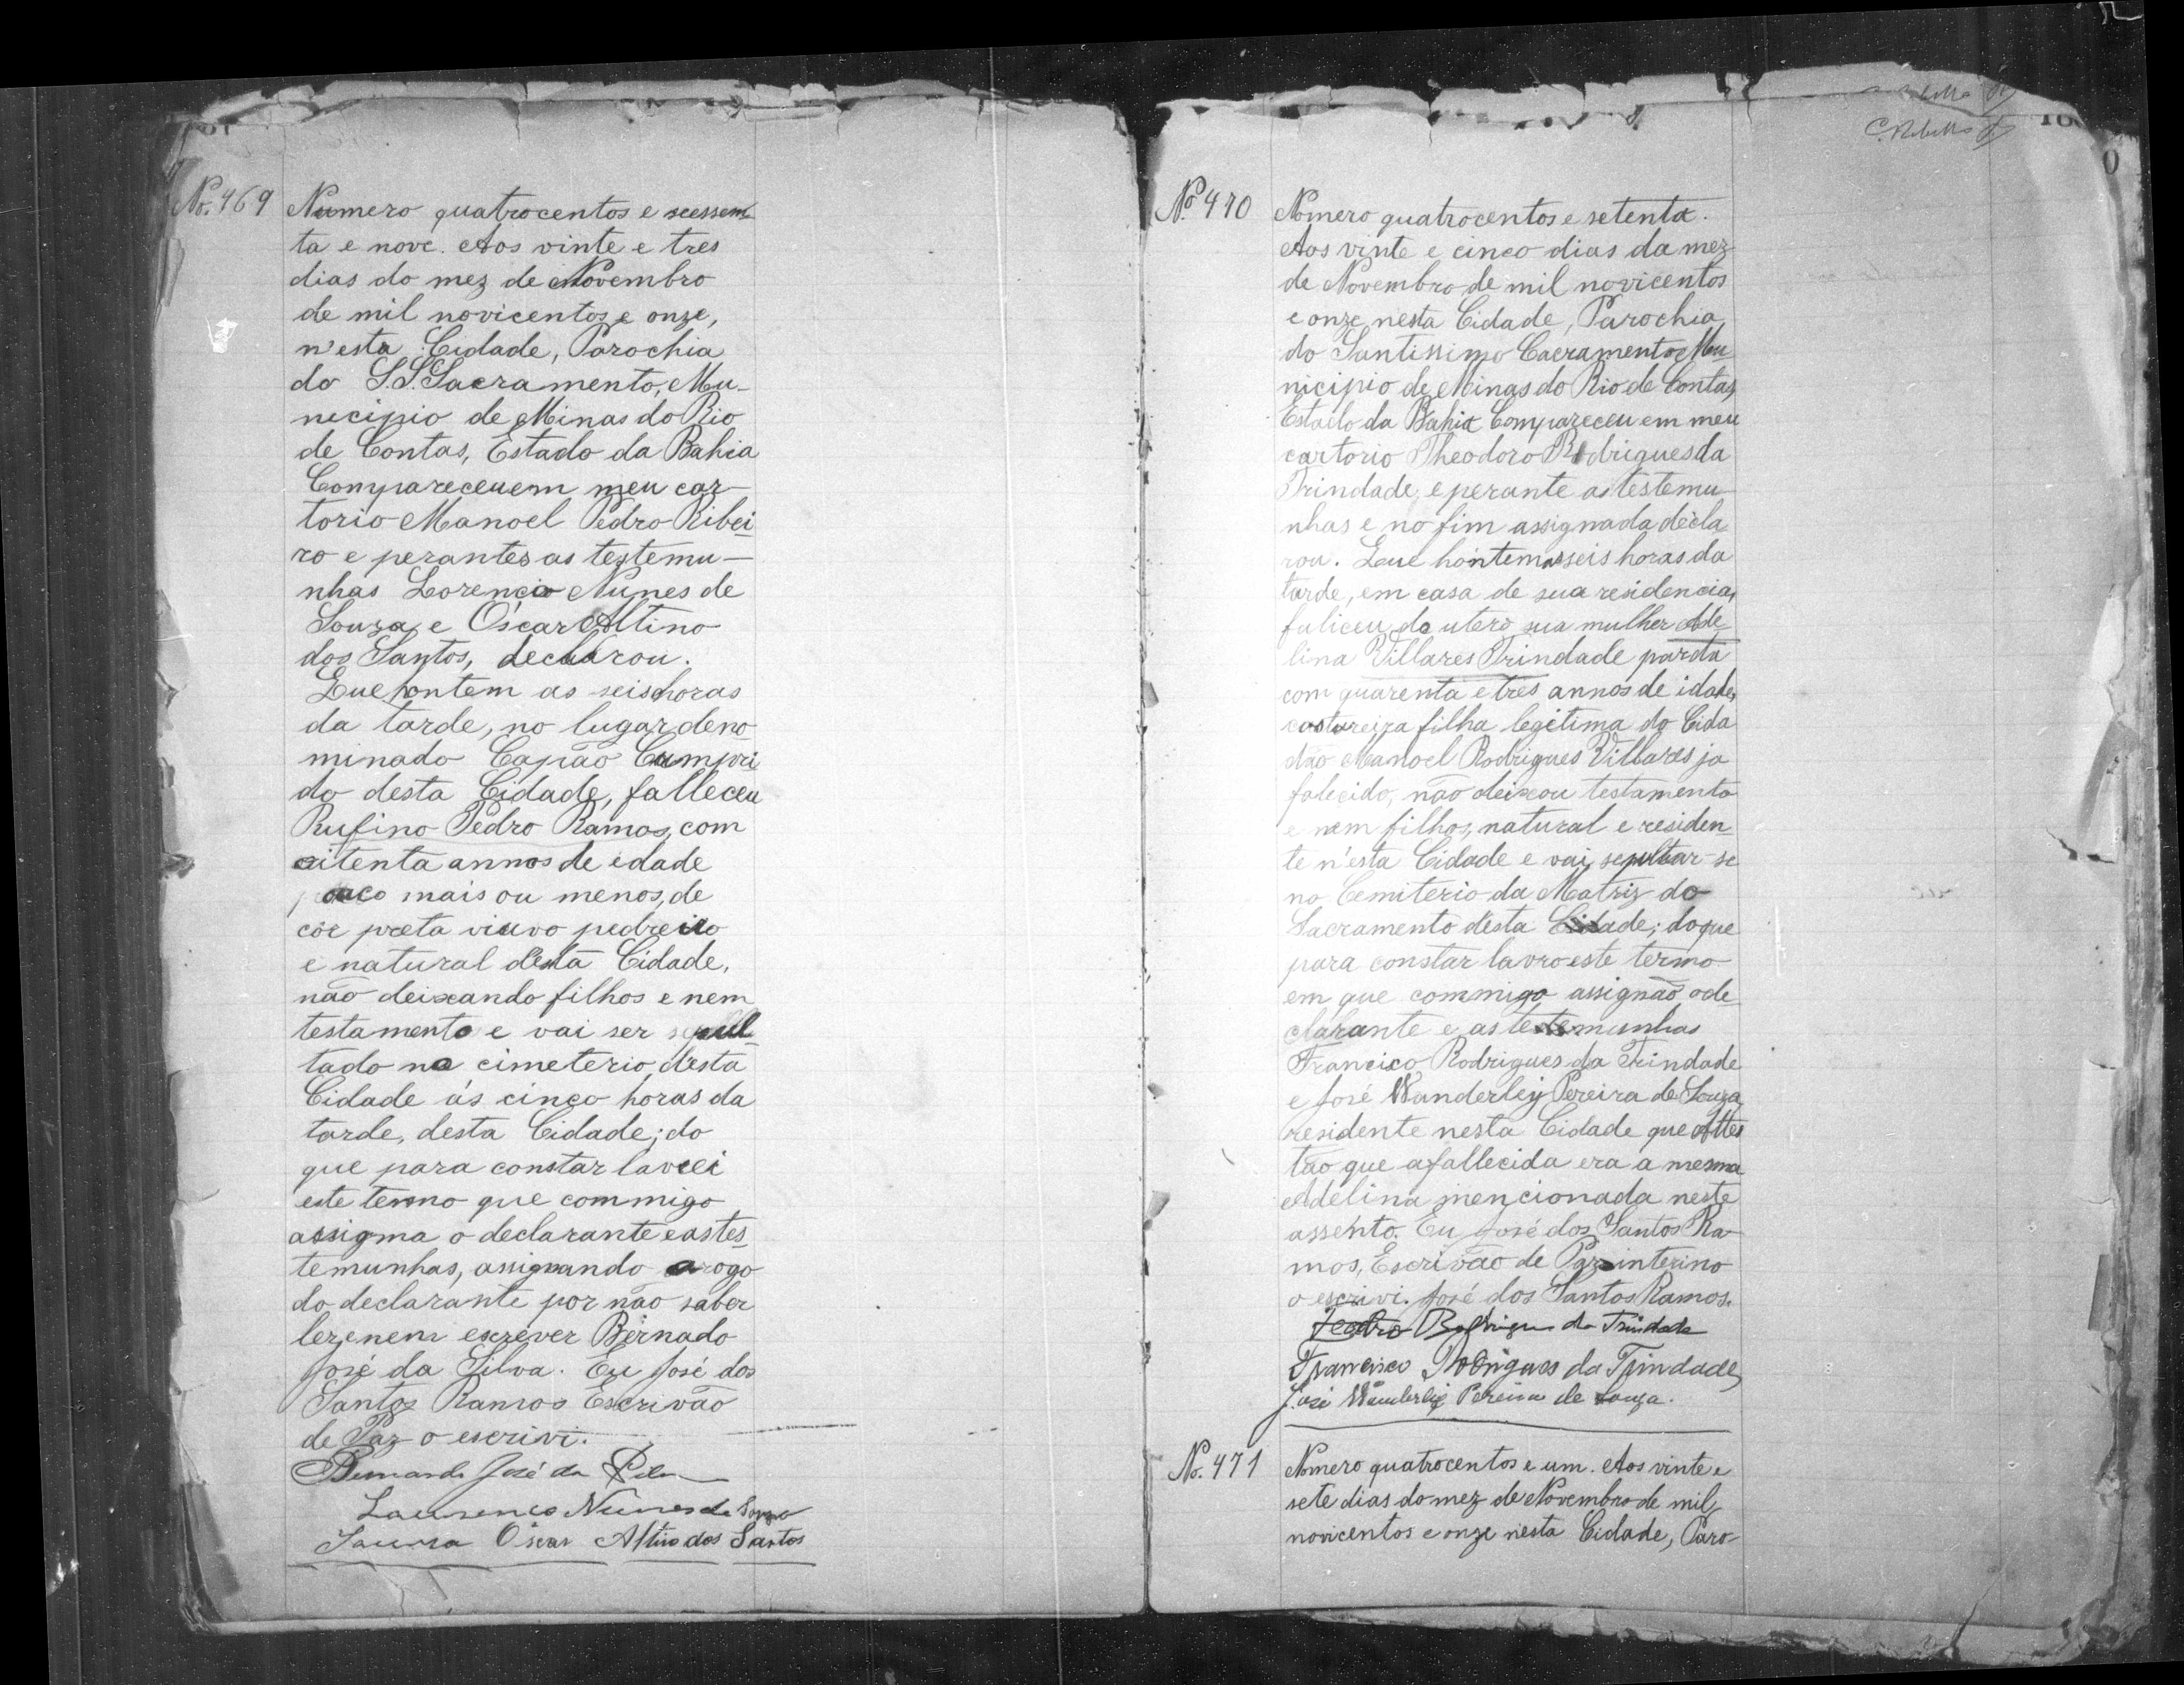 No. 469
Numero quatrocentos e scessen
ta e nove. Aos vinte e tres
dias do mez de Novembro
de mil novicentos e onze,
n'esta Cidade, Parochia
do S.S. Sacramento, Mu-
necipio de Minas do Rio
de Contas, Estado da Bahia
Compareceu em meu car-
torio Manoel Pedro Ribei
ro e perantes as testemu-
nhas Lorencio Nunes de
Souza, e Oscar Altino
dos Santos, declarou.
Que hontem as seis horas
da tarde, no lugar deno
minado Capão Cumpri
do desta Cidade, falleceu
Rufino Pedro Ramos, com
oitenta annos de edade
pouco mais ou menos, de
côr preta viuvo pedreiro
e natural desta Cidade,
não deixando filhos e nem
testamento e vai ser sepul-
tado no cimeterio desta
Cidade ás cinco horas da
tarde, desta Cidade; do
que para constar lavrei
este termo que commigo
assigna o declarante e as tes-
temunhas, assignando a rogo
do declarante por não saber
ler, e nem escrever Bernado
José da Silva. Eu José dos
Santos Ramos Escrivão
de Paz o escrivi.
Bernardo José da Silva
Laurenço Nunes de Souza
Oscar Altino dos Santos
C. Rebello
No. 470
Nomero quatrocentos e setenta.
Aos vinte e cinco dias da mez
de Novembro de mil novicentos
e onze nesta Cidade, Parochia
do Santissimo Cacramento, Mu
nicipio de Minas do Rio de Contas,
Estado da Bahia Compareceu em meu
cartorio Theodoro Rodrigues da
Trindade, e perante as testemu-
nhas e no fim assignada decla
rou. Que hontem as seis horas da
tarde, em casa de sua residencia,
faliceu do utero sua mulher Ade
lina Villares Trindade parda
com quarenta e tres annos de idade,
costureira filha legitima do Cida
dão Manoel Rodrigues Villares ja
falecido, não deixou testamento
e nem filhos, natural e residen
te n'esta Cidade e vai sepultar-se
no Cemiterio da Matriz do
Sacramento desta Cidade; do que
para constar lavro este termo
em que commigo assignão o de
clarante e as testemunhas
Francisco Rodrigues da Trindade
e José Wanderley Pereira de Souza,
residente nesta Cidade que attes
tão que a fallecida era a mesma
Adelina mencionada neste
assento. Eu José dos Santos Ra-
mos, Escrivão de Paz interino
o escrivi. José dos Santos Ramos.
Teodro Rodrigues da Trindade
Francisco Rodrigues da Trindade
José Wanderley Pereira de Souza.
No. 471
Nomero quatrocentos e um. Aos vinte e
sete dias do mez de Novembro de mil
novicentos e onze nesta Cidade, Paro-